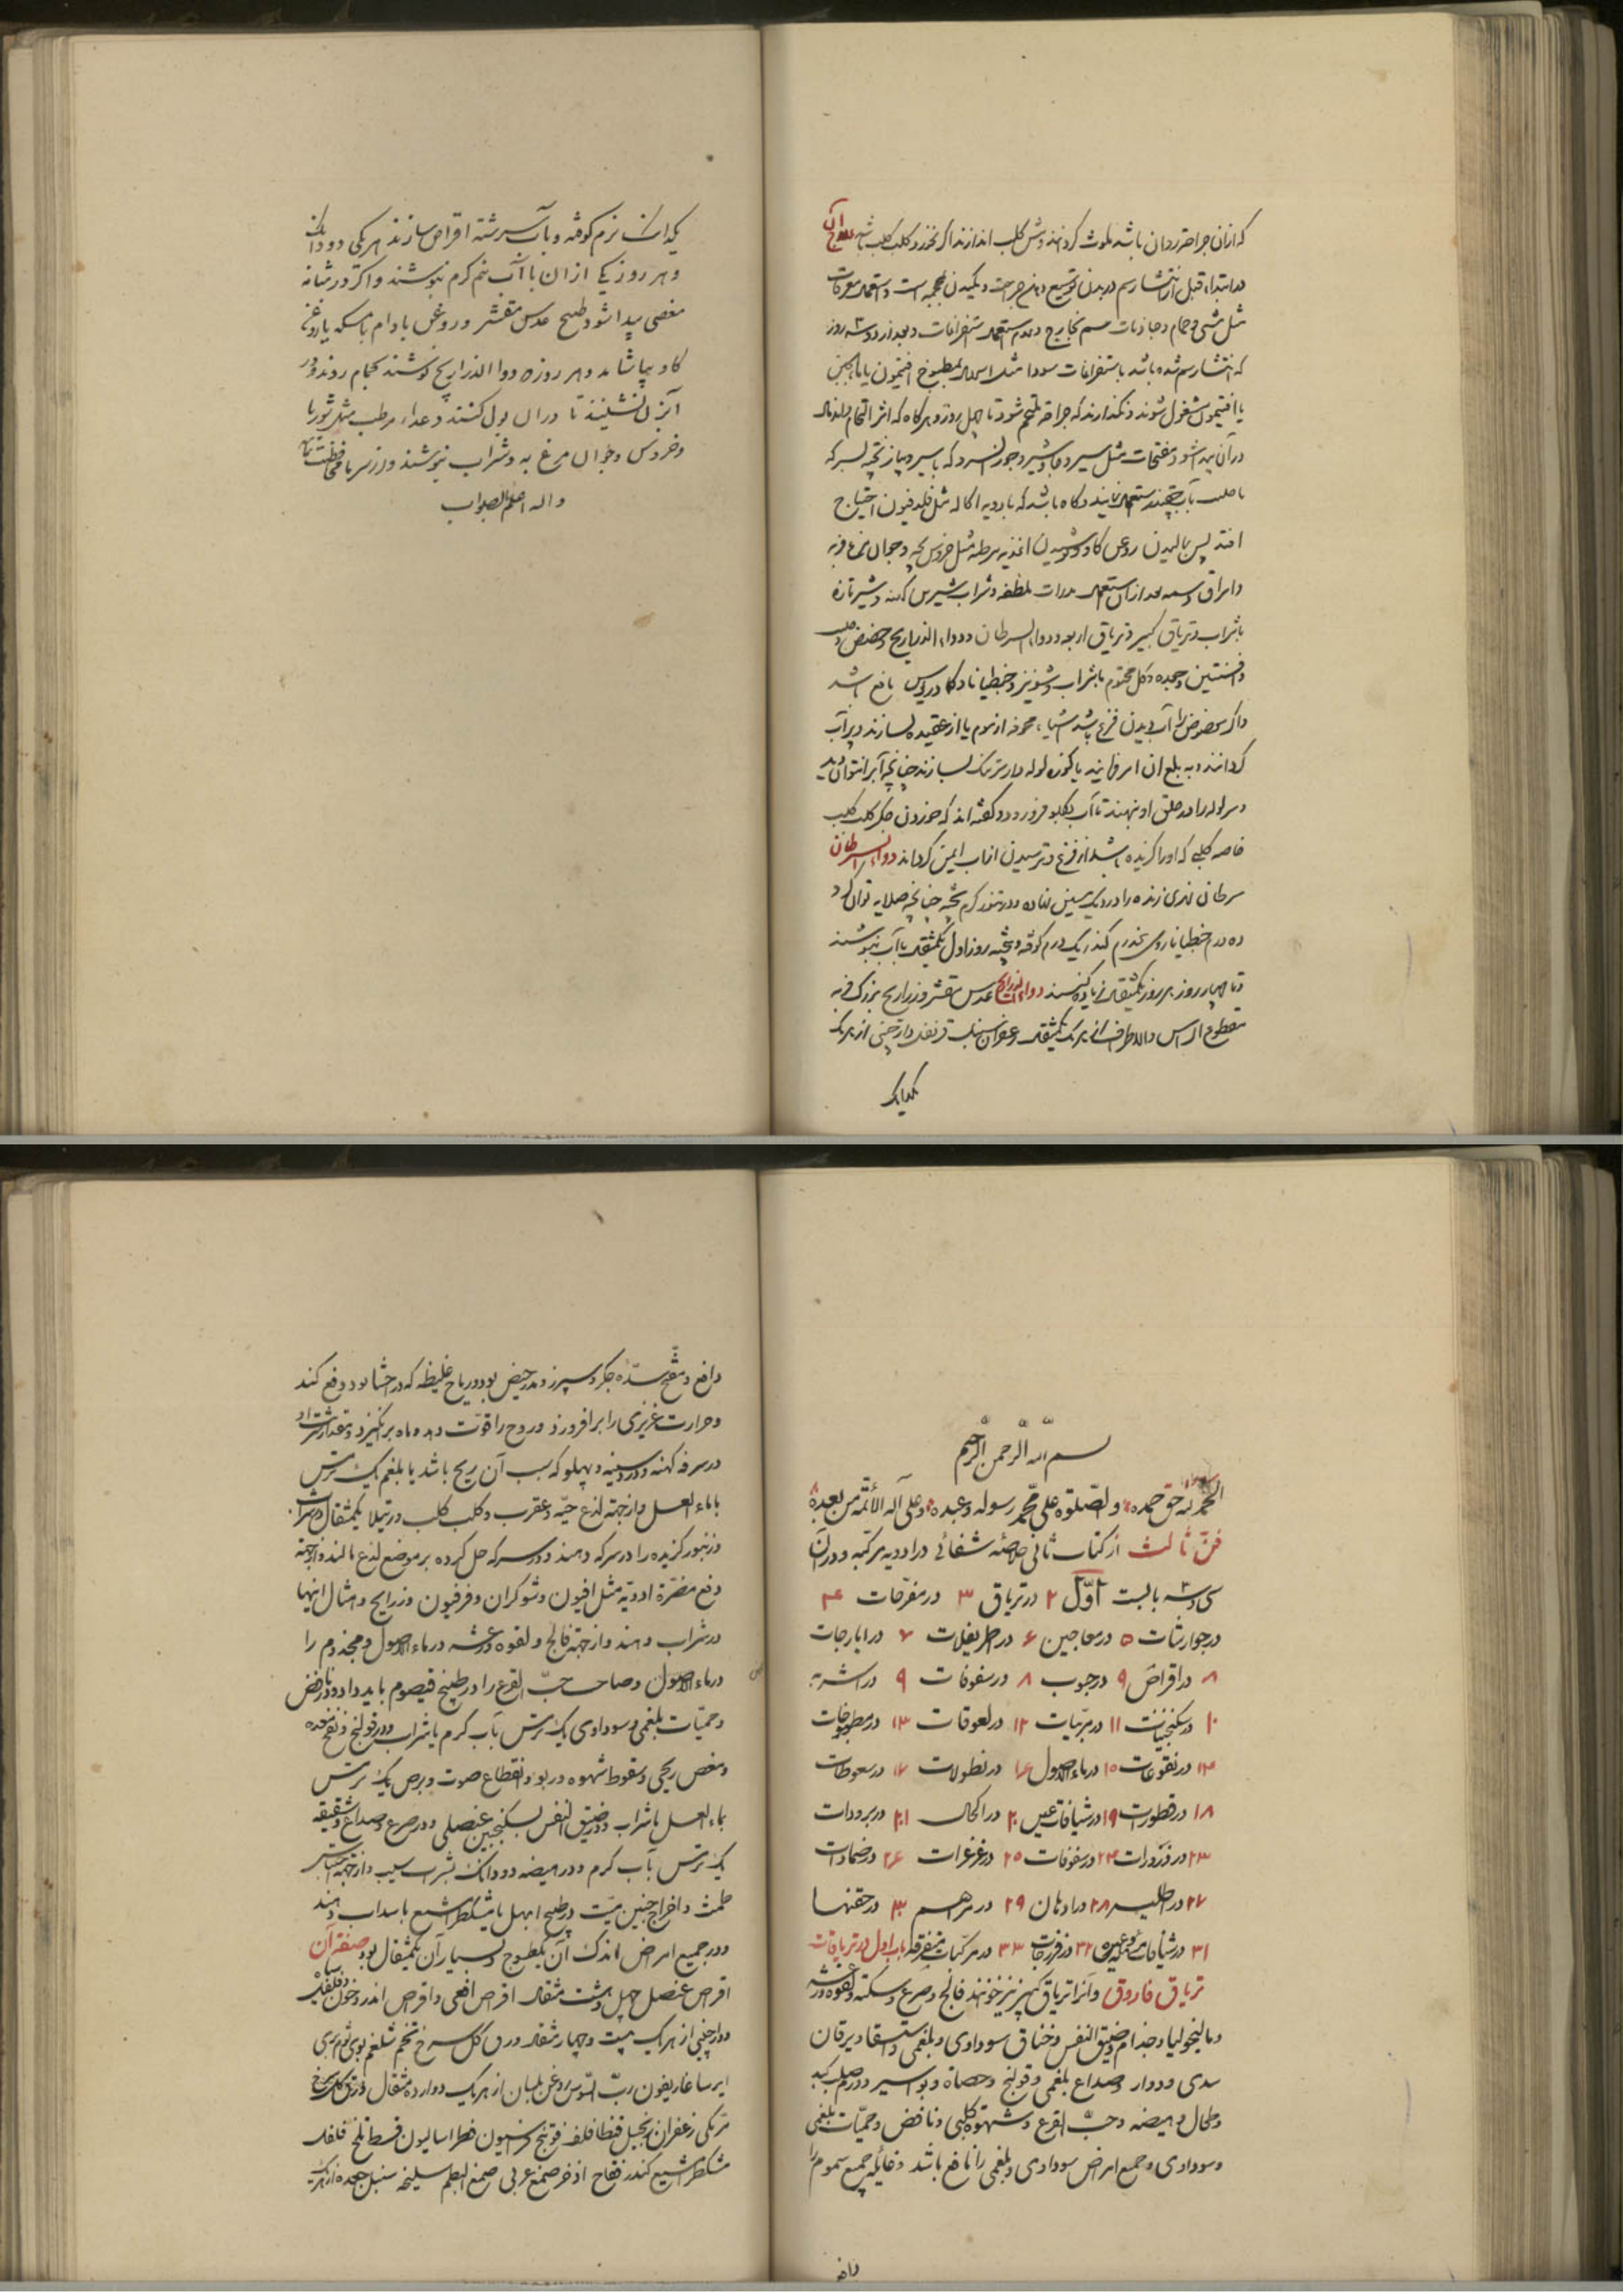 که ازان جراحت روان باشد ملوث کردانند و پیش کلب اندازند اکر نخورد کلب کلب باشد علاج آن
در ابتدا قبل از انتشار سم در بدن توسیع دهن جراحت و مکیدن محجمه است و استعمال معرقات
مثل مشی و حمام و جاذبات سم بخارج و عدم استعمال استفراغات و بعد از دو سه روز
که انتشار سم شده باشد باستفراغات سودا مثل اسهال بمطبوخ افتیمون یا ماءالجبن
با افتیمون مشغول شوند و نکذارند که جراحت ملتحم شود تا چهل روز و هرکاه که اثر التحام و اندمال
در آن پیدا شود مفتحات مثل سیر و جاوشیر و جوز السرو که با سیر و پیاز پخته بسرکه
استعمال نمایند و کاه باشد که بادویه اکاله مثل فلدفیون احتیاج
افتد پس مالیدن روغن کاو و نوشیدن اغذیه مرطبه مثل خروس بچه و جوان مرغ فربه
بعد ازان استعمال مدرات ملطفه و شراب شیرین کهنه و شیر تازه
با شراب و تریاق کبیر و تریاق اربعه و دواء السرطان و دواء الذراریح و حضض
و افستین و جعده و کل مختوم با شراب و شونیز و جنطیانا و کمادریوس نافع باشد
کردانند و به بلع ان امر فرمایند یا کوزه لوله دار بسازند چنانچه آب را نتواند دید
و سر لوله را در حلق او نهند تا آب بکلو فرو رود و کفته اند که خوردن جکر کلب کلب
خاصه کلبی که او را کزیده باشد از فزع و ترسیدن از اب ایمن کرداند دواء السرطان
سرطان نهری زنده را در دیک مسین نهاده در تنور کرم پخته چنانچه صلایه توان کرد
ده درم جنطیانا رومی پنجدرم کندر یک درم کوفته و بیخته روز اول یکمثقال با آب بنوشند
و تا چهار روز هر روز یکمثقال زیاده کنند دواء الذراریح عدس مقشر و ذراریح بزرک فربه
مقطوع الراس والاطراف از هر یک یکمثقال زعفران سنبل قرنفل دارچینی از هر یک
یکدانک
یکدانک نرم کوفته و بآب سرشته اقراص سازند هر یکی دو دانک
و هر روز یکی ازان با آب نیم کرم بنوشند و اکر در مثانه
مغصی پیدا شود طبیخ عدس مقشر و روغن بادام یا مسکه یا روغن
کاو بیاشامند و هر روزه دواء الذراریح نوشند بحمام روند و در
آبزن نشینند تا دران بول کنند و غداء مرطب مثل شوربا
و خروس و جوان مرغ به و شراب نوشند و از سرما محافظت نمایند
والله اعلم بالصواب
بسم الله الرحمن الرحیم
الحمد لله حق حمده والصلوة علی محمد رسوله و عبده و علی آله الائمة من بعده
فن ثالث از کتاب ثانی خلاصه شفائی در ادویه مرکبه و در آن
سی و سه بابست اوّل ۲ در تریاق ۳ در مفرحات ۴
در جوارشات ۵ در معاجین ۶ در اطریفلات ۷ در ایارجات
۸ در اقراص ۹ در حبوب ۸ در سفوفات ۹ در اشربه
۱۰ در سکنجبینات ۱۱ در مربّیات ۱۲ در لعوقات ۱۳ در مطبوخات
۱۴ در نقوعات ۱۵ در ماءالاصول ۱۶ در نطولات ۱۷ در سعوطات
۱۸ در قطورات ۱۹ در شیافات عین ۲۰ در اکحال ۲۱ در برودات
۲۳ در ذرورات ۲۴ در سفوفات ۲۵ در غرغرات ۲۶ در ضمادات
۲۷ در اطلیه ۲۸ در ادهان ۲۹ در مراهم ۳۰ در حقنها
۳۱ در شیافات و غیره ۳۲ در فرزجات ۳۳ در مرکبات متفرقه باب اول در تریاقات
تریاق فاروق و آنرا تریاق کبیر نیز خوانند فالج و صرع و سکته و لقوه و رعشه
و مالیخولیا و جذام و ضیق النفس و خناق سوداوی و بلغمی و استسقا و یرقان
سدی و دوار و صداع بلغمی و قولنج و حصاة و بواسیر و ورم صلب کبد
و طحال و هیضه و حبّ القرع و شهوة کلبی و نافض و حمیّات بلغمی
و سوداوی و جمیع امراض سوداوی و بلغمی را نافع باشد و غایله جمیع سموم را
دافع
دافع و مفتّح سدّه جکر و سپرز و مدر حیض بود و ریاح غلیظه که در احشا بود دفع کند
و حرارت غریزی را برافروزد و روح را قوّت دهد و باه برانکیزد و مقدار شربت او
در سرفه کهنه و درد سینه و پهلو که سبب آن ریح باشد یا بلغم یک ترمس
با ماء العسل و از جهة لذع حیّه و عقرب و کلب کلب و رتیلا یکمثقال با شراب
و زنبور کزیده را در سرکه دهند و در سرکه حل کرده بر موضع لذع مالند و از جهة
دفع مضرّة ادویه مثل افیون و شوکران و فرفیون و ذراریح و امثال اینها
در شراب دهند و از جهة فالج و لقوه و رعشه در ماء الاصول و مجذوم را
در ماء الاصول و صاحب حبّ القرع را در طبیخ قیصوم باید داد و در نافض
و حمیّات بلغمی و سوداوی یک ترمس بآب کرم یا شراب و در قولنج و نفخ معده
و مغص ریحی و سقوط شهوه و ربو و انقطاع صوت و برص یک ترمس
بماء العسل یا شراب و در ضیق النفس بسکنجبین عنصلی و در صرع و صداع و شقیقه
یک ترمس بآب کرم و در هیضه دو دانک بشراب سیب و از جهة احتباس
طمث و اخراج جنین میّت در طبیخ ابهل یا مشکطرامشیع یا سداب دهند
و در جمیع امراض اندک آن یکطسوج و بسیار آن یکمثقال بود صفة آن
اقراص عنصل چهل و هشت مثقال اقراص افعی و اقراص اندروخون و فلفل
و دارچینی از هر یک بیست و چهار مثقال ورق کل سرخ تخم شلغم بری ثوم بری
ایرسا غاریقون ربّ السّوس روغن بلسان از هر یک دوازده مثقال
مرّ مکی زعفران زنجبیل فوتنج فطراسالیون قسط تلخ فلفل
مشکطرامشیع کندر فقاح اذخر صمغ عربی صمغ البطم سلیخه سنبل جعده از هر یک